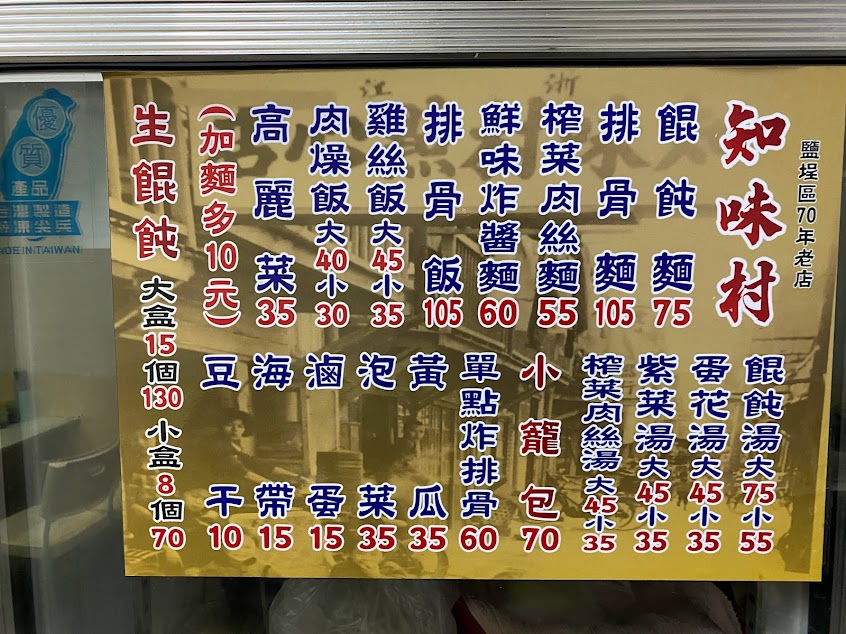 鹽埕區70年老店
知味村
餛飩麵75
排骨麵105
榨菜肉絲麵55
鮮味炸醬麵60
排骨飯105
雞絲飯大45小35
肉燥飯大40小30
高麗菜35
(加麵多10元)
餛飩湯大75小55
蛋花湯大45小35
紫菜湯大45小35
榨菜肉絲湯大45小35
小籠包70
單點炸排骨60
黃瓜35
泡菜35
滷蛋15
海帶15
豆干10
生餛飩大盒15個130小盒8個70
浙江
優質
產品
台灣製造
MADE IN TAIWAN